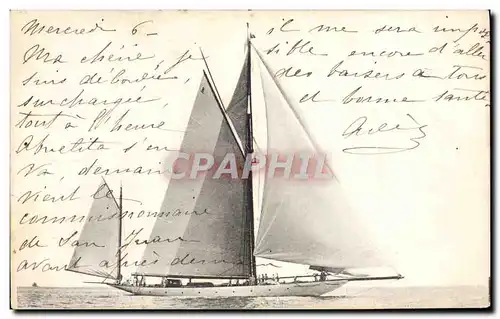 Mercredi 6 –
Ma chérie, je
suis débordée,
surchargée,
tout à l'heure
Abuelita s'en
va, demain
vient le
commissionnaire
de San Juan
avant après demain
il me sera impos
sible encore d'aller
des baisers à tous
et bonne santé
Adèle
CPARAMA